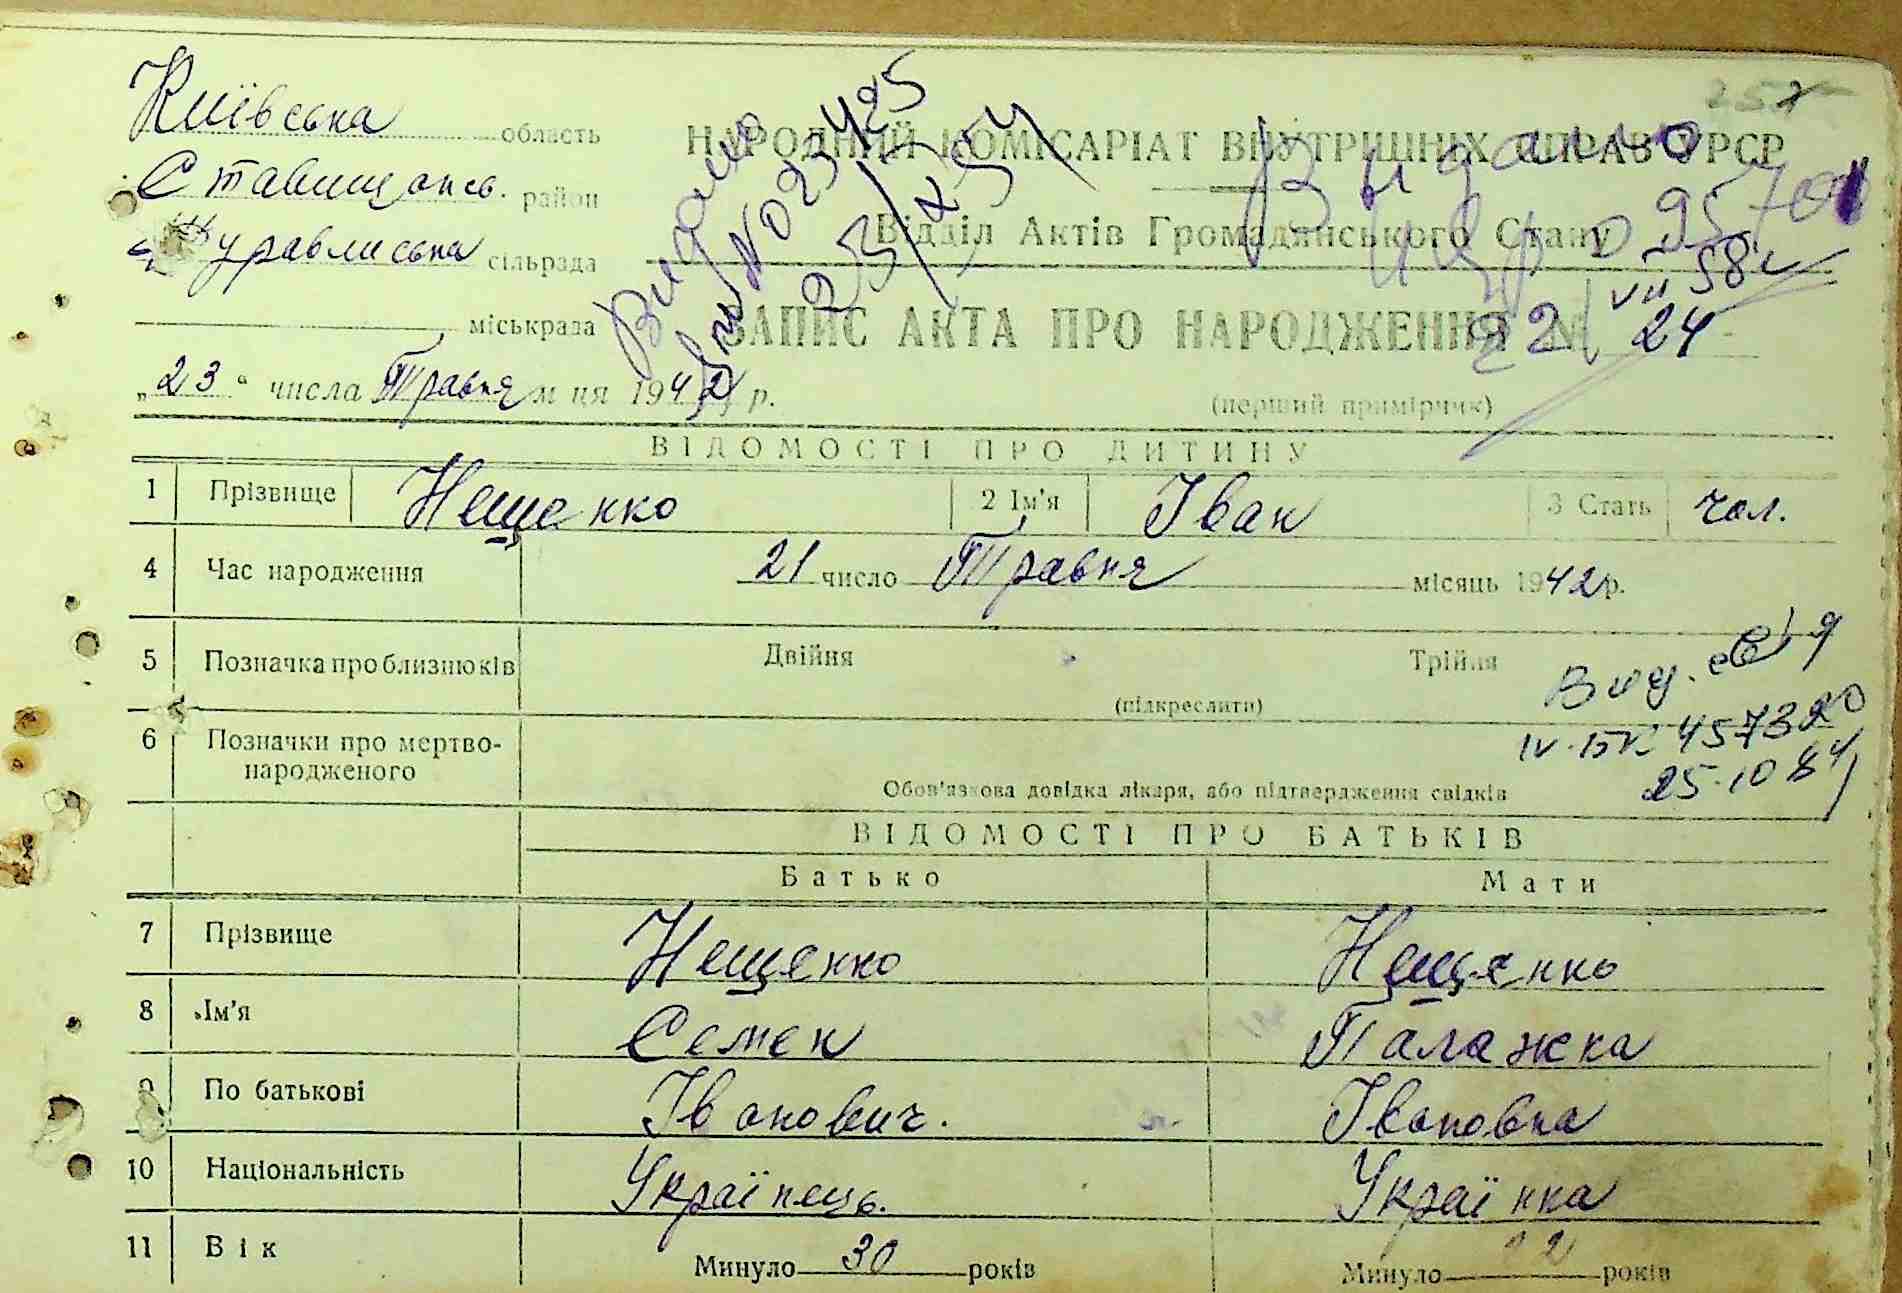 Київська область
Ставищанськ. район
Журавлиська сільрада
міськрада
НАРОДНИЙ КОМІСАРІАТ ВНУТРІШНІХ СПРАВ УРСР
Відділ Актів Громадянського Стану
ЗАПИС АКТА ПРО НАРОДЖЕННЯ № 24
(перший примірник)
„23“ числа Травня м-ця 1942 р.
Видано
NO 234425
25/X 54
Видано
22/VII 58
ВІДОМОСТІ ПРО ДИТИНУ
1 Прізвище Нещенко 2 Ім'я Іван 3 Стать чол.
4 Час народження 21 число Травня місяць 1942 р.
5 Позначка про близнюків Двійня Трійня
(підкреслити)
Вид.
IV-БК 457320
25.10 84
6 Позначки про мертво-
народженого
Обов'язкова довідка лікаря, або підтвердження свідків
ВІДОМОСТІ ПРО БАТЬКІВ
Батько Мати
7 Прізвище Нещенко Нещенко
8 Ім'я Семен Палажка
9 По батькові Іванович. Івановна
10 Національність Українець. Українка
11 Вік Минуло 30 років Минуло років